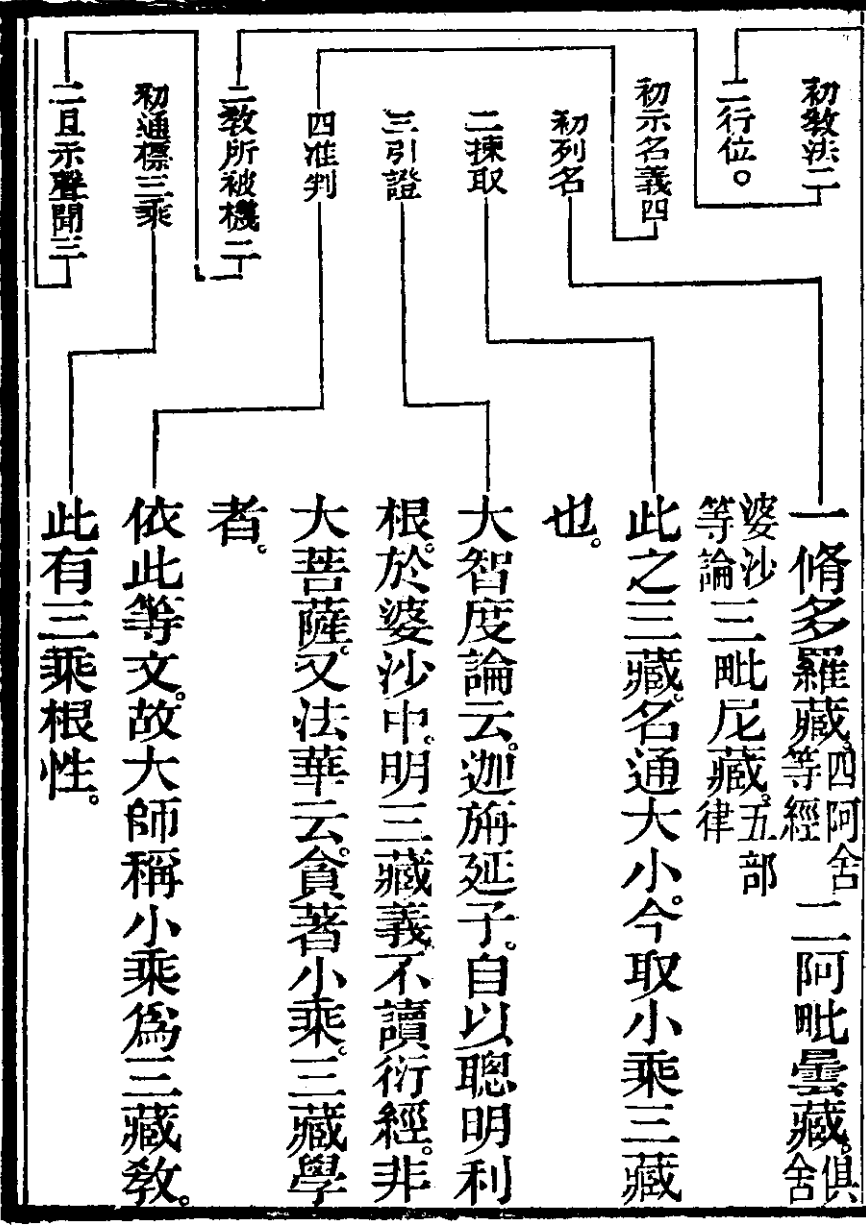 初教法二
二行位。
初示名義四
初列名
二揀取
三引證
四准判
二教所被機二
初通標三乘
二且示聲聞三
一脩多羅藏。四阿舍等經 二阿毗曇藏。俱舍
婆沙等論 三毗尼藏。五部律
此之三藏。名通大小。今取小乘三藏
也。
大智度論云。迦旃延子。自以聰明利
根。於婆沙中。明三藏義。不讀衍經。非
大菩薩。又法華云。貪著小乘。三藏學
者。
依此等文。故大師稱小乘爲三藏教。
此有三乘根性。